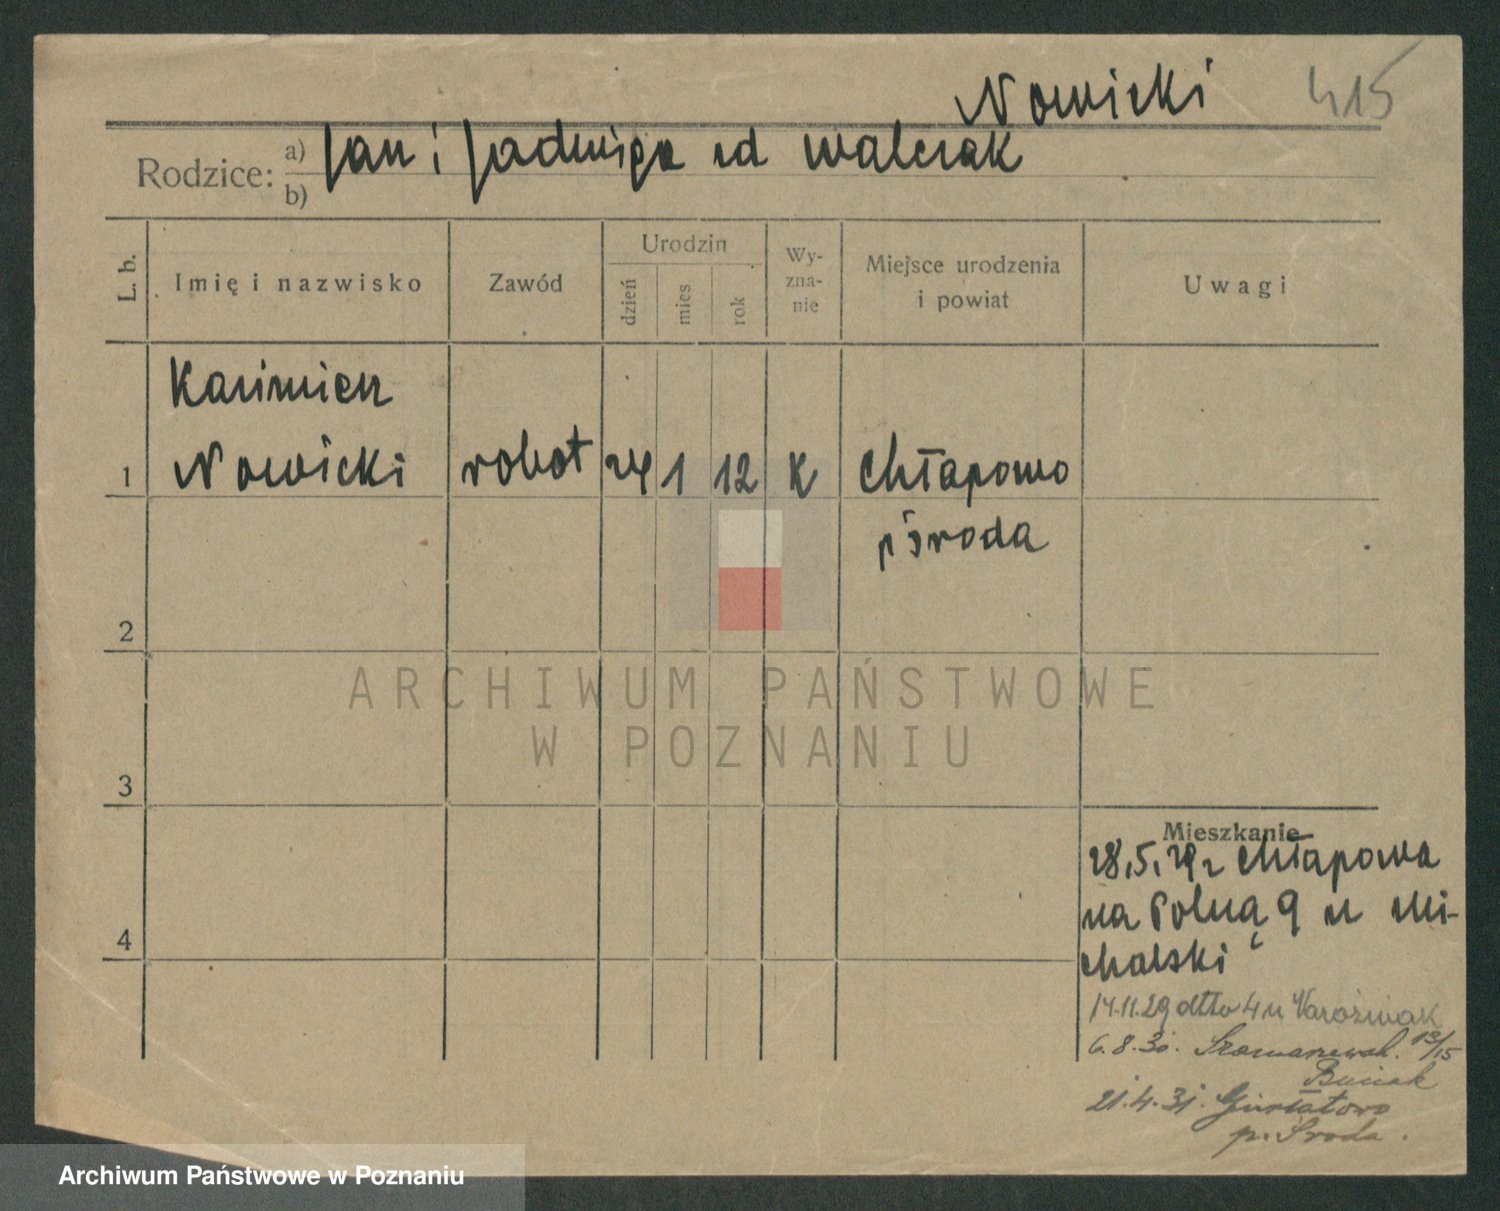 Nowicki 415
Rodzice: a) Jan i Jadwiga od Walczak
b)
L. b. Imię i nazwisko Zawód Urodzin dzień mies rok Wy-zna-nie Miejsce urodzenia i powiat Uwagi
Kazimierz
1 Nowicki robot 24 1 12 K Chłapowo
p Środa
2
ARCHIWUM PAŃSTWOWE
W POZNANIU
3
Mieszkanie
28.5.29 z Chłapowa
na Polną 9 u Mi-
chalski
4
14.11.29 dtto 4 u
6.8.30. 13/15
21.4.31.
p. Środa.
Archiwum Państwowe w Poznaniu